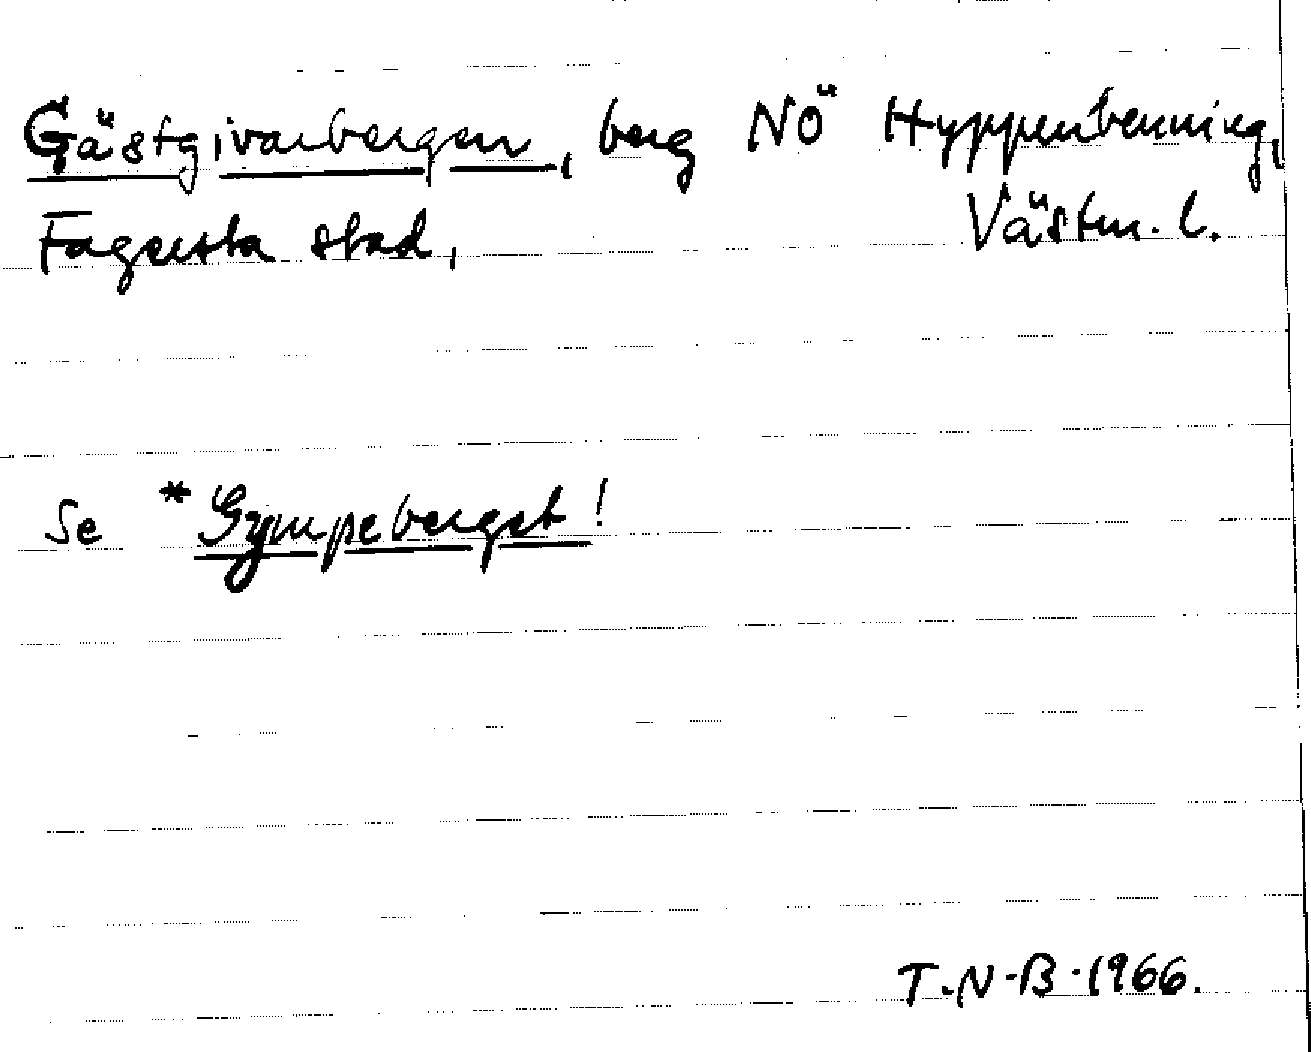 Gästgivarbergen, berg NÖ Hyppenbenning,
Fagersta stad, Västm. l.
Se *Gympebergst!
T.N-B-1966.